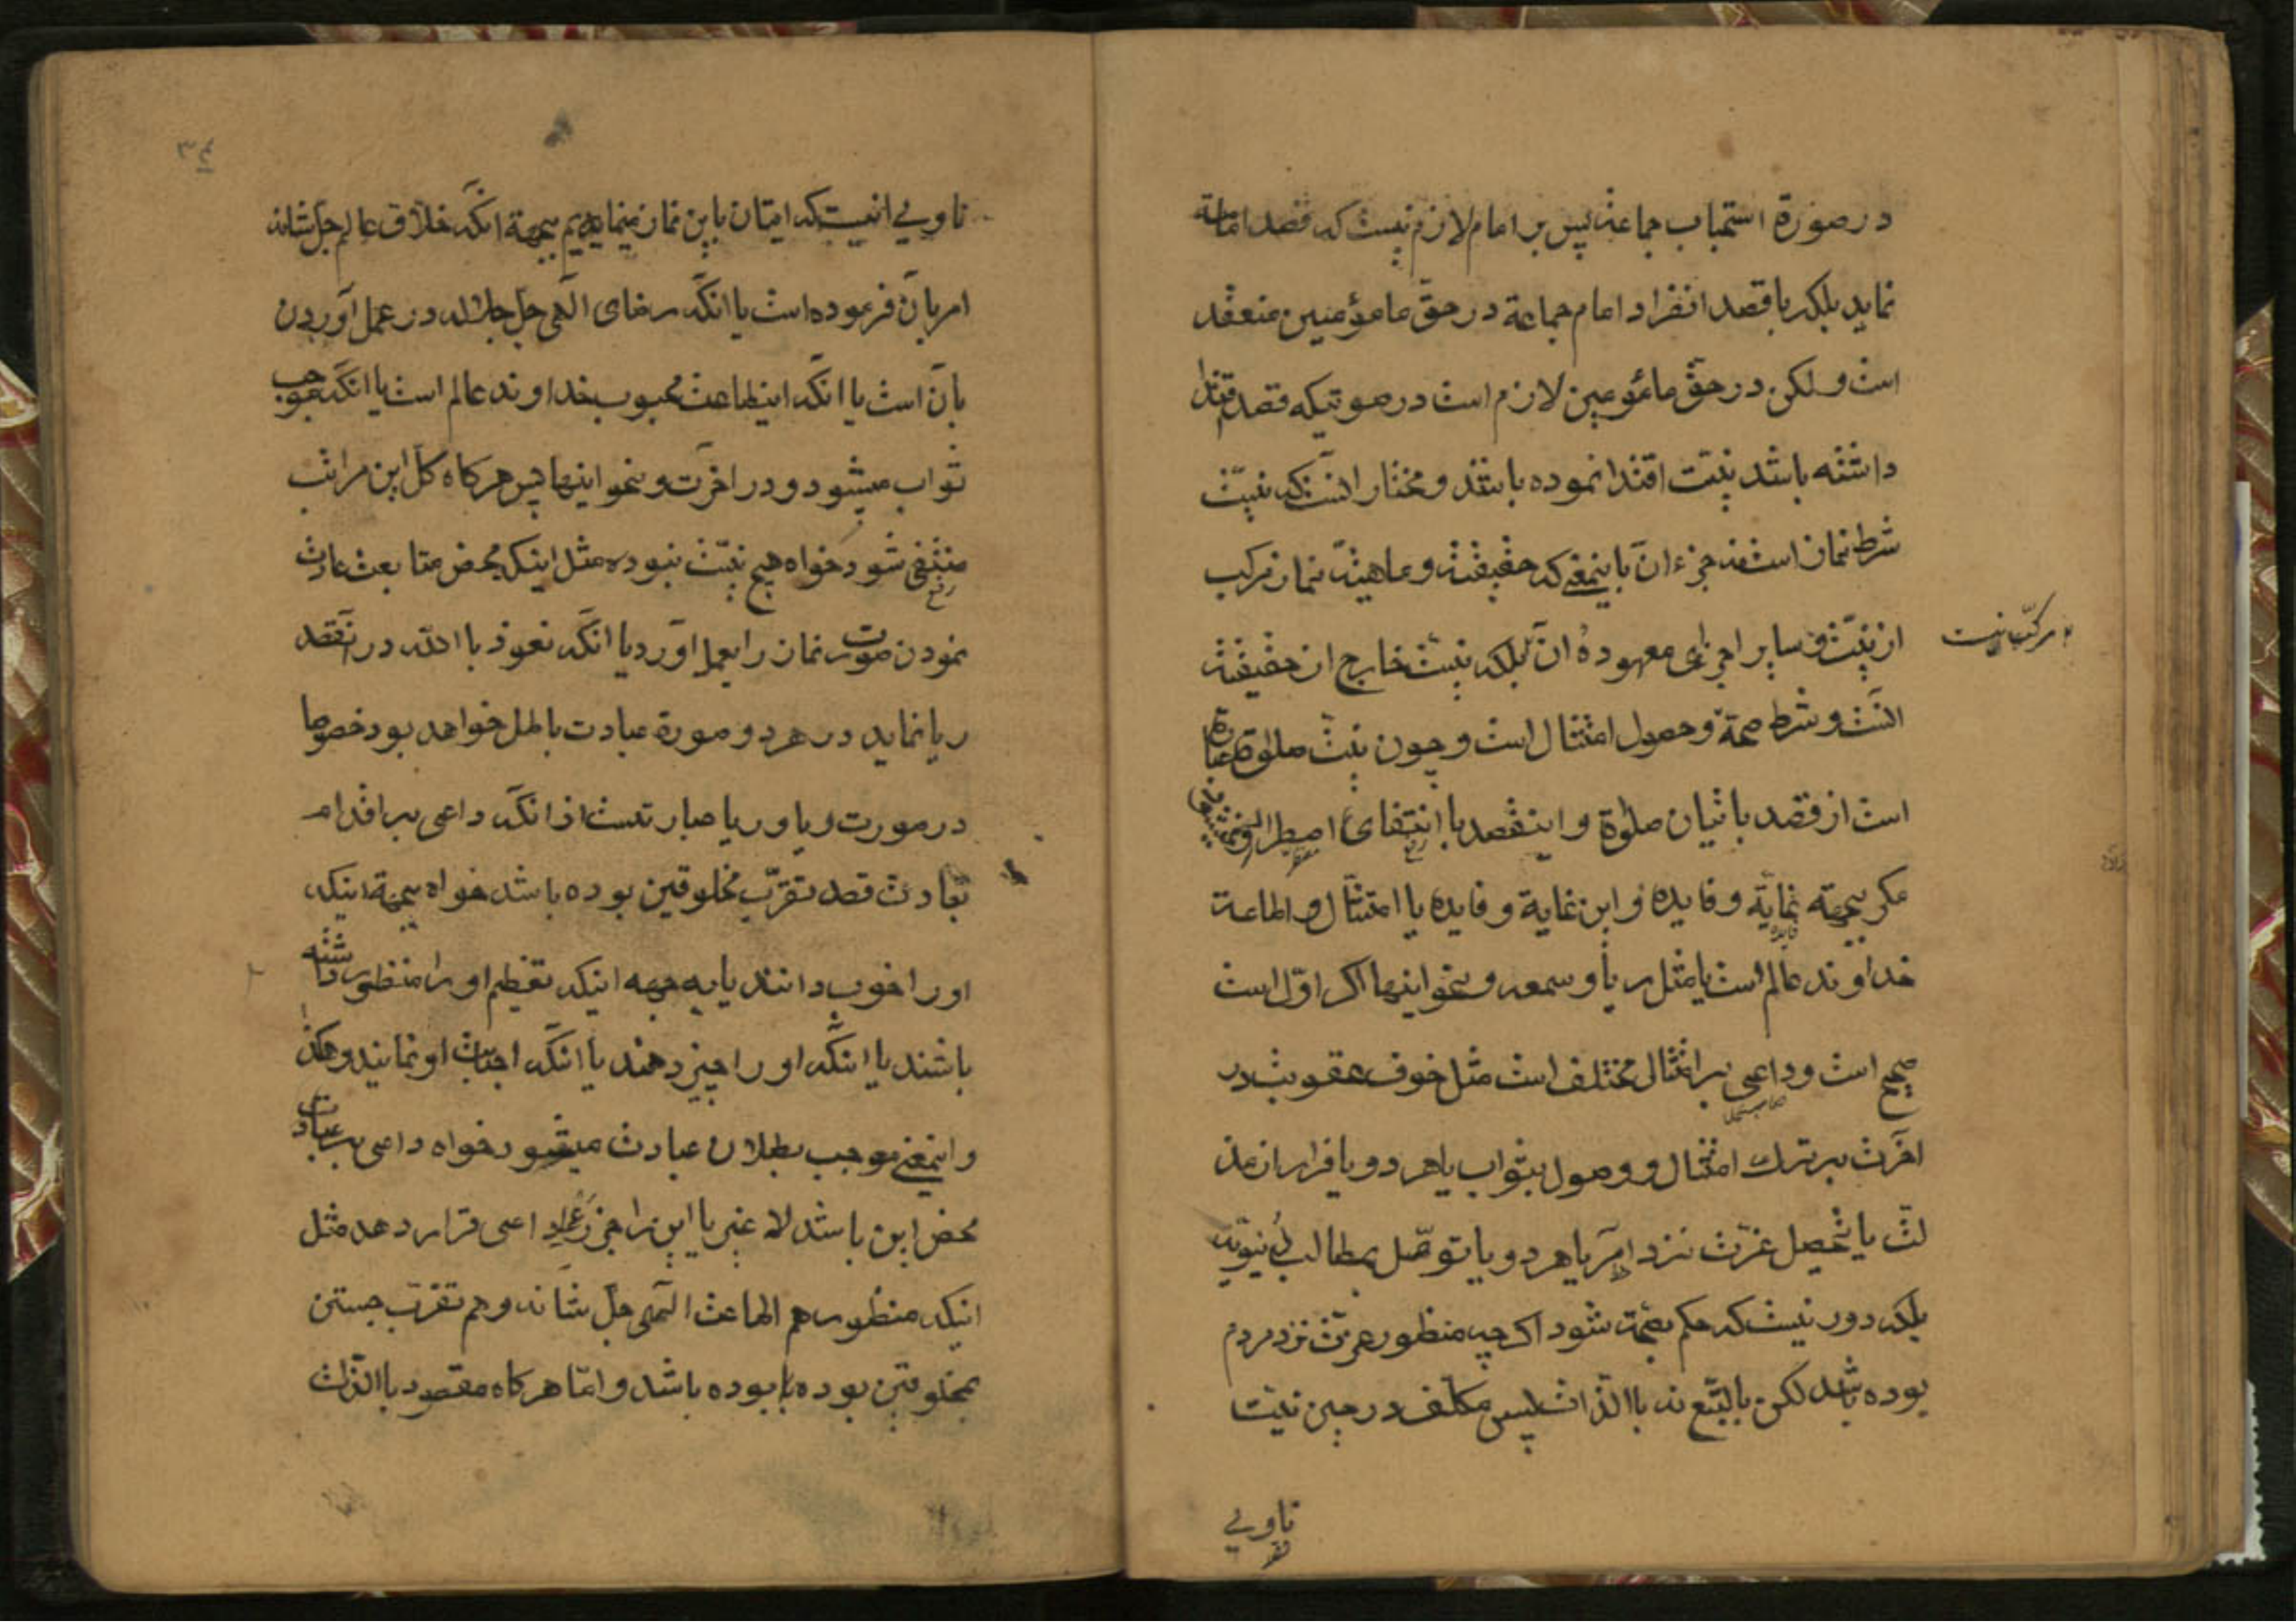 در صورة استحباب جماعة پس بر امام لازم نیست که قصد امامة
نماید بلکه با قصد انفراد امام جماعة در حقّ مامؤمنین منعقد
است ولکن در حقّ مامؤمین لازم است در صورتیکه قصد اقتدا
داشته باشد نیّت اقتدا نموده باشد و مختار انست که نیّت
شرط نماز است نه جزء ان باینمعنی که حقیقة و ماهیة نماز مرکب
از نیّت و سایر اجزای معهوده ان بلکه نیت خارج از حقیقة
مرکّب نیست
انست و شرط صحة و حصول امتثال است و چون نیّت صلوة عبارة
است از قصد باتیان صلوة و اینقصد با انتفای اضطرار نمیشود
مگر بجهة غایة و فایده و این غایة و فایده یا امتثال و اطاعة
خداوند عالم است یا مثل ریا و سمعه و نحو اینها اگر اوّل است
صحیح است و داعی بر امتثال مختلف است مثل خوف عقوبت در
اخرت بر ترک امتثال و وصول بثواب یا هر دو یا فرار از مذ
لت یا تحصیل عزّت نزد امر یا هر دو یا توصّل بمطالب دنیویّه
بلکه دور نیست که حکم بصحة شود اگرچه منظور عزّت نزد مردم
بوده باشد لکن بالتّبع نه باالذّات پس مکلّف در حین نیّت
ناویی
٣٤
ناویی انیست که اتیان باین نماز مینمایم بجهة انکه خلّاق عالم جل شانه
امر بآن فرموده است یا انکه رضای الهی جل جلاله در عمل آوردن
بآن است یا انکه اینطاعت محبوب خداوند عالم است یا انکه موجب
ثواب میشود در اخرت و نحو اینها پس هرگاه کلّ این مراتب
منتفی شود خواه هیچ نیّت نبوده مثل اینکه بمحض متابعت عادت
نمودن صورت نماز را بعمل اورد یا انکه نعوذ باالله در انقصد
ریا نماید در هر دو صورة عبادت باطل خواهد بود خصوصا
در صورت ریا و ریا عبارتست از انکه داعی بر اقدام
بعبادت قصد تقرّب مخلوقین بوده باشد خواه بجهة اینکه
او را خوب دانند یا به جهه اینکه تعظیم او را منظور داشته
باشند یا اینکه او را چیز دهند یا انکه اجتناب او نمایند و هکذا
و اینمعنی موجب بطلان عبادت میشود خواه داعی بر عبادت
محض این باشد لا غیر یا این را جزء داعی قرار دهد مثل
اینکه منظور هم اطاعت الهی جلّ شانه و هم تقرّب جستن
بمخلوقین بوده بوده باشد و امّا هرگاه مقصود باالذّات